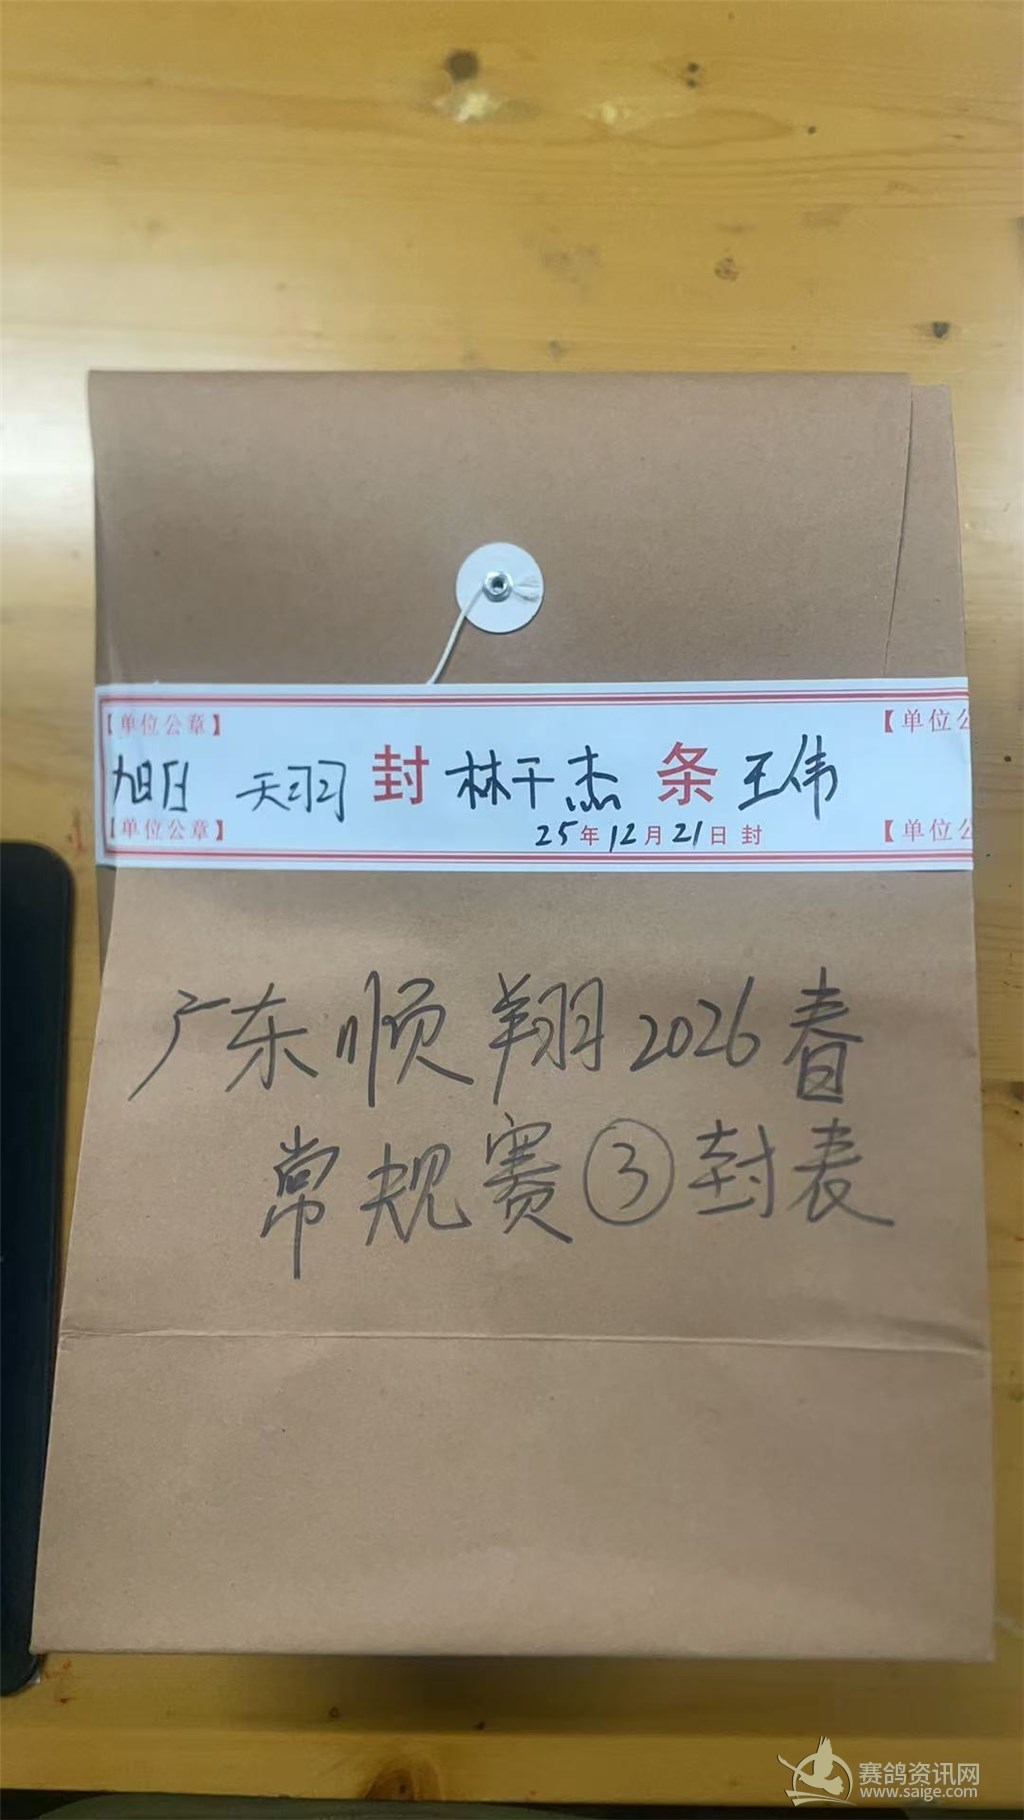 【单位公章】 【单位公
旭日 天羽 封 林千杰 条 王伟
【单位公章】 25年12月21日 封 【单位公
广东顺翔2026春
常规赛③封表
赛鸽资讯网
www.saige.com